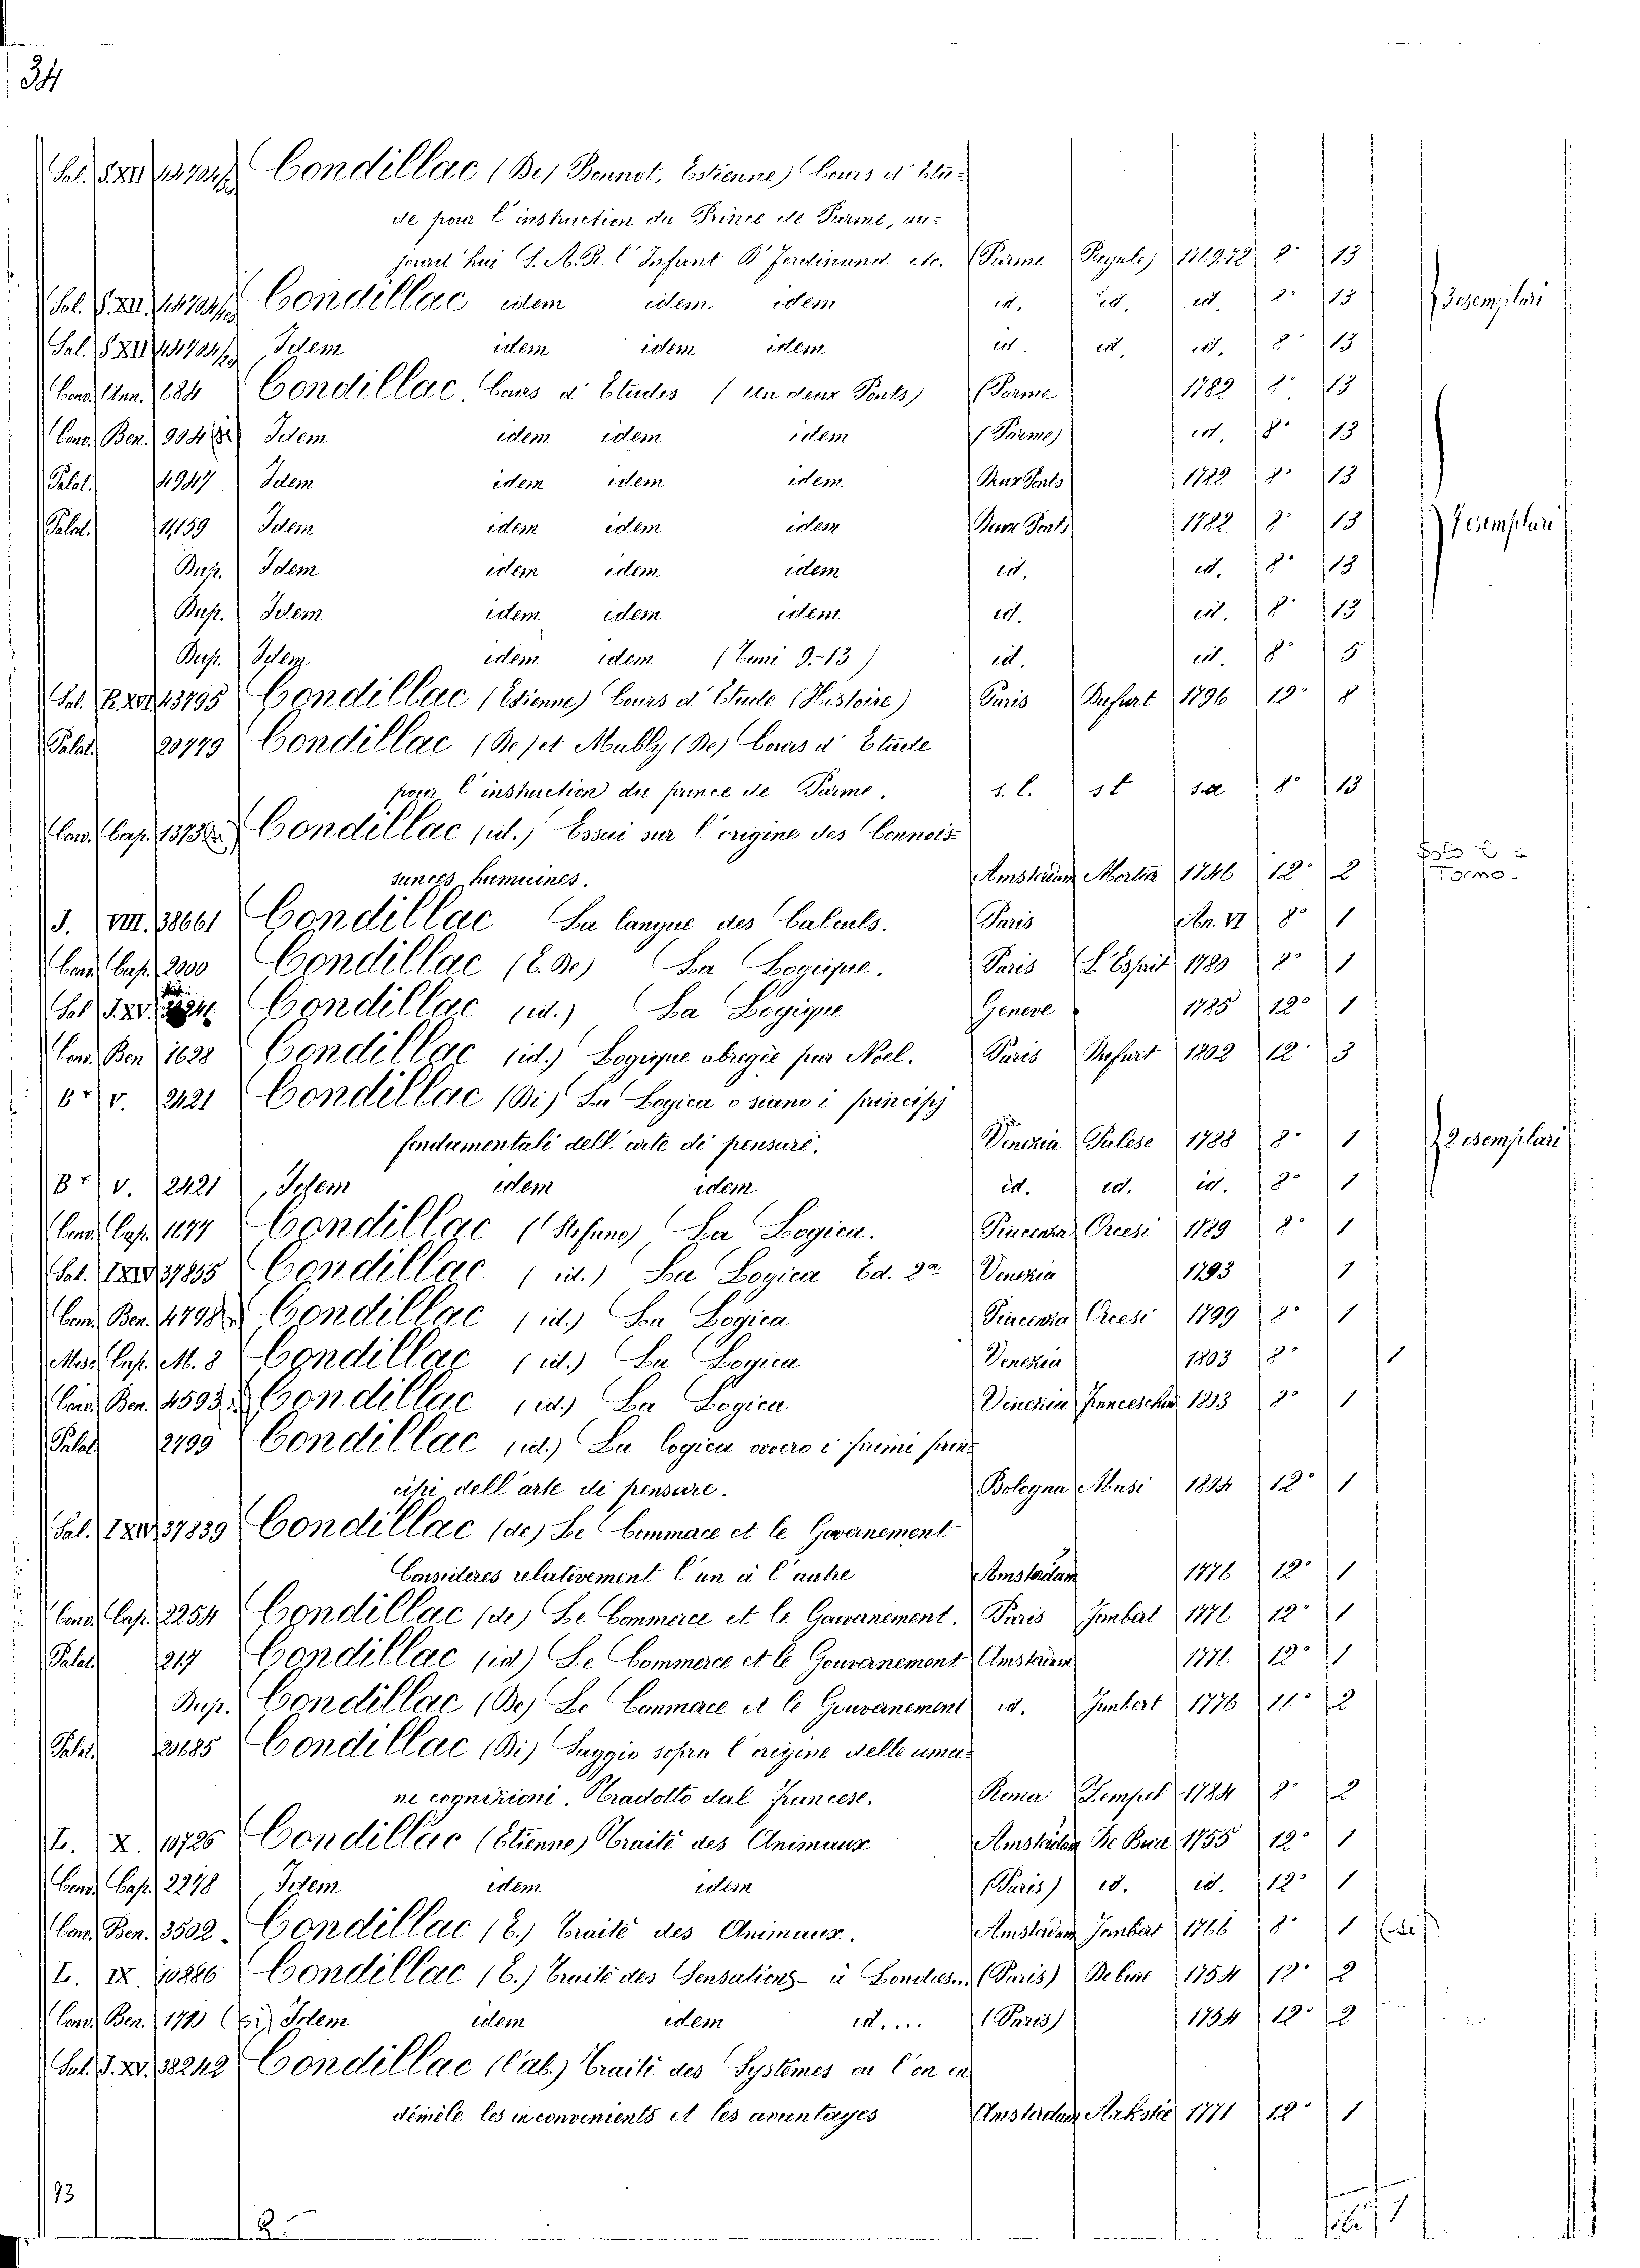 34
Sal. S. XII 14704/ Condillac (De) Bonnot, Estienne) Cours d'Etu-
de pour l'instruction du Prince de Parme, au-
jourd'hui S. A. R. l'Infant D. Ferdinand etc. (Parme Royale) 1769-72 8° 13
Sal. S. XII. 14704/ Condillac idem idem idem id. id. id. 8° 13 3 esemplari
Sal. S XII 14704/ Idem idem idem idem id. id. id. 8° 13
Cons. Ann. 684 Condillac. Cours d'Etudes (Au deux Ponts) (Parme 1782 8° 13
Cons. Ben. 994 Idem idem idem idem (Parme) id. 8° 13
Palat. 4947 Idem idem idem idem Deux Ponts 1782 8° 13
Palat. 11,159 Idem idem idem idem Deux Ponts 1782 8° 13 7 esemplari
Dup. Idem idem idem idem id. id. 8° 13
Dup. Idem idem idem idem id. id. 8° 13
Dup. Idem idem idem (Tomi 9.-13) id. id. 8° 5
Sal. R. XVI 43795 Condillac (Etienne) Cours d'Etude (Histoire) Paris Dufart 1796 12° 8
Palat. 20779 Condillac (De) et Mably (De) Cours d'Etude
pour l'instruction du prince de Parme. s. l. s t s.a 8° 13
Cons. Cap. Condillac (id.) Essai sur l'origine des Connois-
sances humaines. Amsterdam Mortier 1746 12° 2
J. VIII. 38661 Condillac La langue des Calculs. Paris An. VI 8° 1
Cons. Cap. 2900 Condillac (E. De) La Logique. Paris L'Esprit 1780 8° 1
Sal. J. XV. Condillac (id.) La Logique Geneve 1785 12° 1
Cons. Ben 1628 Condillac (id.) Logique abregée par Noel. Paris Dufart 1802 12° 3
Br V. 2421 Condillac (Di) La Logica o siano i principj
fondamentali dell'arte di pensare. Venezia Palese 1788 8° 1 2 esemplari
Br V. 2421 Idem idem idem id. id. id. 8° 1
Cons. Cap. 1177 Condillac (Stefano) La Logica. Piacenza Orcesi 1789 8° 1
Sal. I XII 37835 Condillac (id.) La Logica Ed. 2a Venezia 1793 1
Cons. Ben. 4798 Condillac (id.) La Logica Piacenza Orcesi 1799 8° 1
Misc. Cap. M. 8 Condillac (id.) La Logica Venezia 1803 8° 1
Cons. Ben. 4593 Condillac (id.) La Logica Venezia Franceschi 1803 8° 1
Palat. 2199 Condillac (id.) La logica ovvero i primi prin-
cipi dell'arte di pensare. Bologna Masi 1824 12° 1
Sal. I XII 37839 Condillac (de) Le Commerce et le Gouvernement
Consideres relativement l'un à l'autre Amsterdam 1776 12° 1
Cons. Cap. 2254 Condillac (de) Le Commerce et le Gouvernement. Paris Jombert 1776 12° 1
Palat. 217 Condillac (id) Le Commerce et le Gouvernement Amsterdam 1776 12° 1
Dup. Condillac (De) Le Commerce et le Gouvernement id. Jombert 1776 11° 2
Palat. 20685 Condillac (Di) Saggio sopra l'origine delle uma-
ne cognizioni. Tradotto dal francese. Roma Zempel 1784 8° 2
L. X. 10726 Condillac (Etienne) Traité des Animaux Amsterdam De Bure 1755 12° 1
Cons. Cap. 2278 Idem idem idem (Paris) id. id. 12° 1
Cons. Ben. 3502. Condillac (E.) Traité des Animaux. Amsterdam Jombert 1766 8° 1
L. IX. 10886 Condillac (E.) Traité des Sensations - à Londres. (Paris) Debure 1754 12° 2
Cons. Ben. 1790 (bis) Idem idem idem id.... (Paris) 1754 12° 2
Sal. J. XV. 38242 Condillac (l'ab.) Traité des Systémes ou l'on en
démele les inconvenients et les avantages Amsterdam Arkstée 1771 12° 1
93